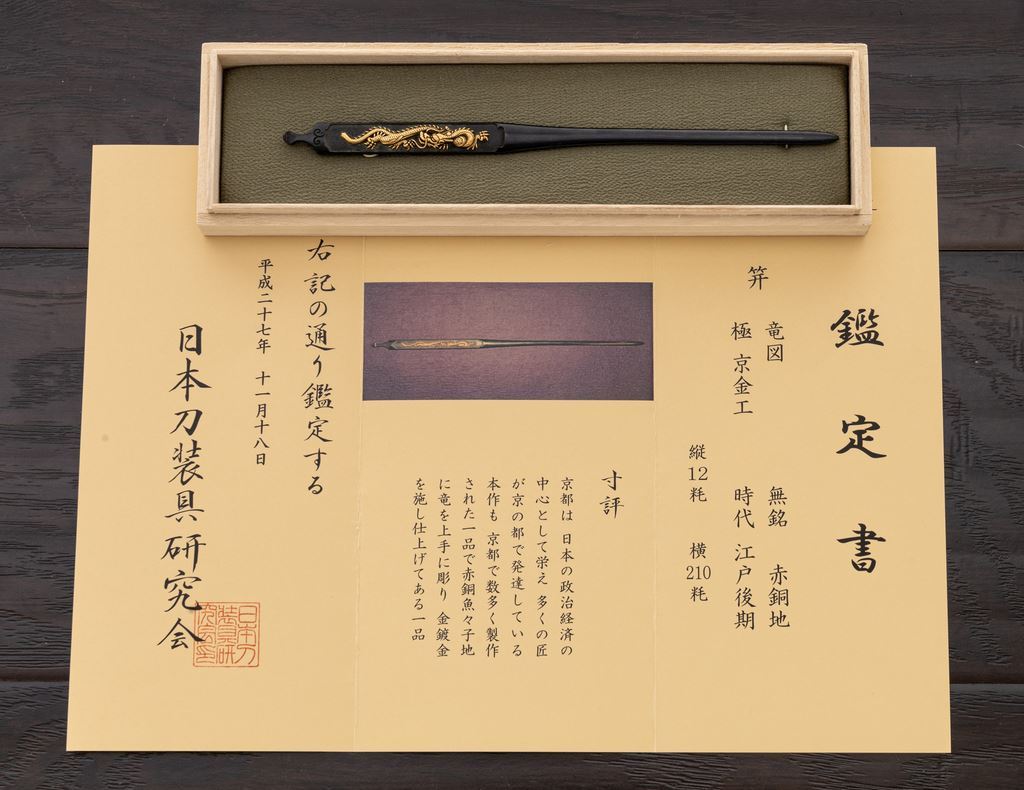 鑑定書
笄
竜図 無銘 赤銅地
極 京金工 時代 江戸後期
縦12粍 横210粍
寸評
京都は 日本の政治経済の
中心として栄え 多くの匠
が京の都で発達している
本作も 京都で数多く製作
された一品で赤銅魚々子地
に竜を上手に彫り 金鍍金
を施し仕上げてある一品
右記の通り鑑定する
平成二十七年 十一月十八日
日本刀装具研究会